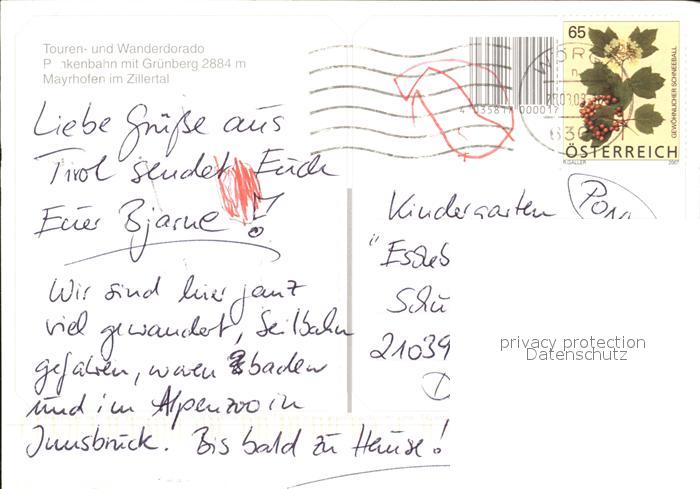 Touren- und Wanderdorado
Penkenbahn mit Grünberg 2884 m
Mayrhofen im Zillertal
Liebe Grüße aus
Tirol sendet Euch
Euer Bjarne!
Wir sind hier ganz
viel gewandert, Seilbahn
gefahren, waren baden
und im Alpenzoo in
Innsbruck. Bis bald zu Hause!
65
GEWÖHNLICHER SCHNEEBALL
ÖSTERREICH
K.GALLER 2007
WÖRGL
630
Kindergarten
"
Schu
21039
D
privacy protection
Datenschutz